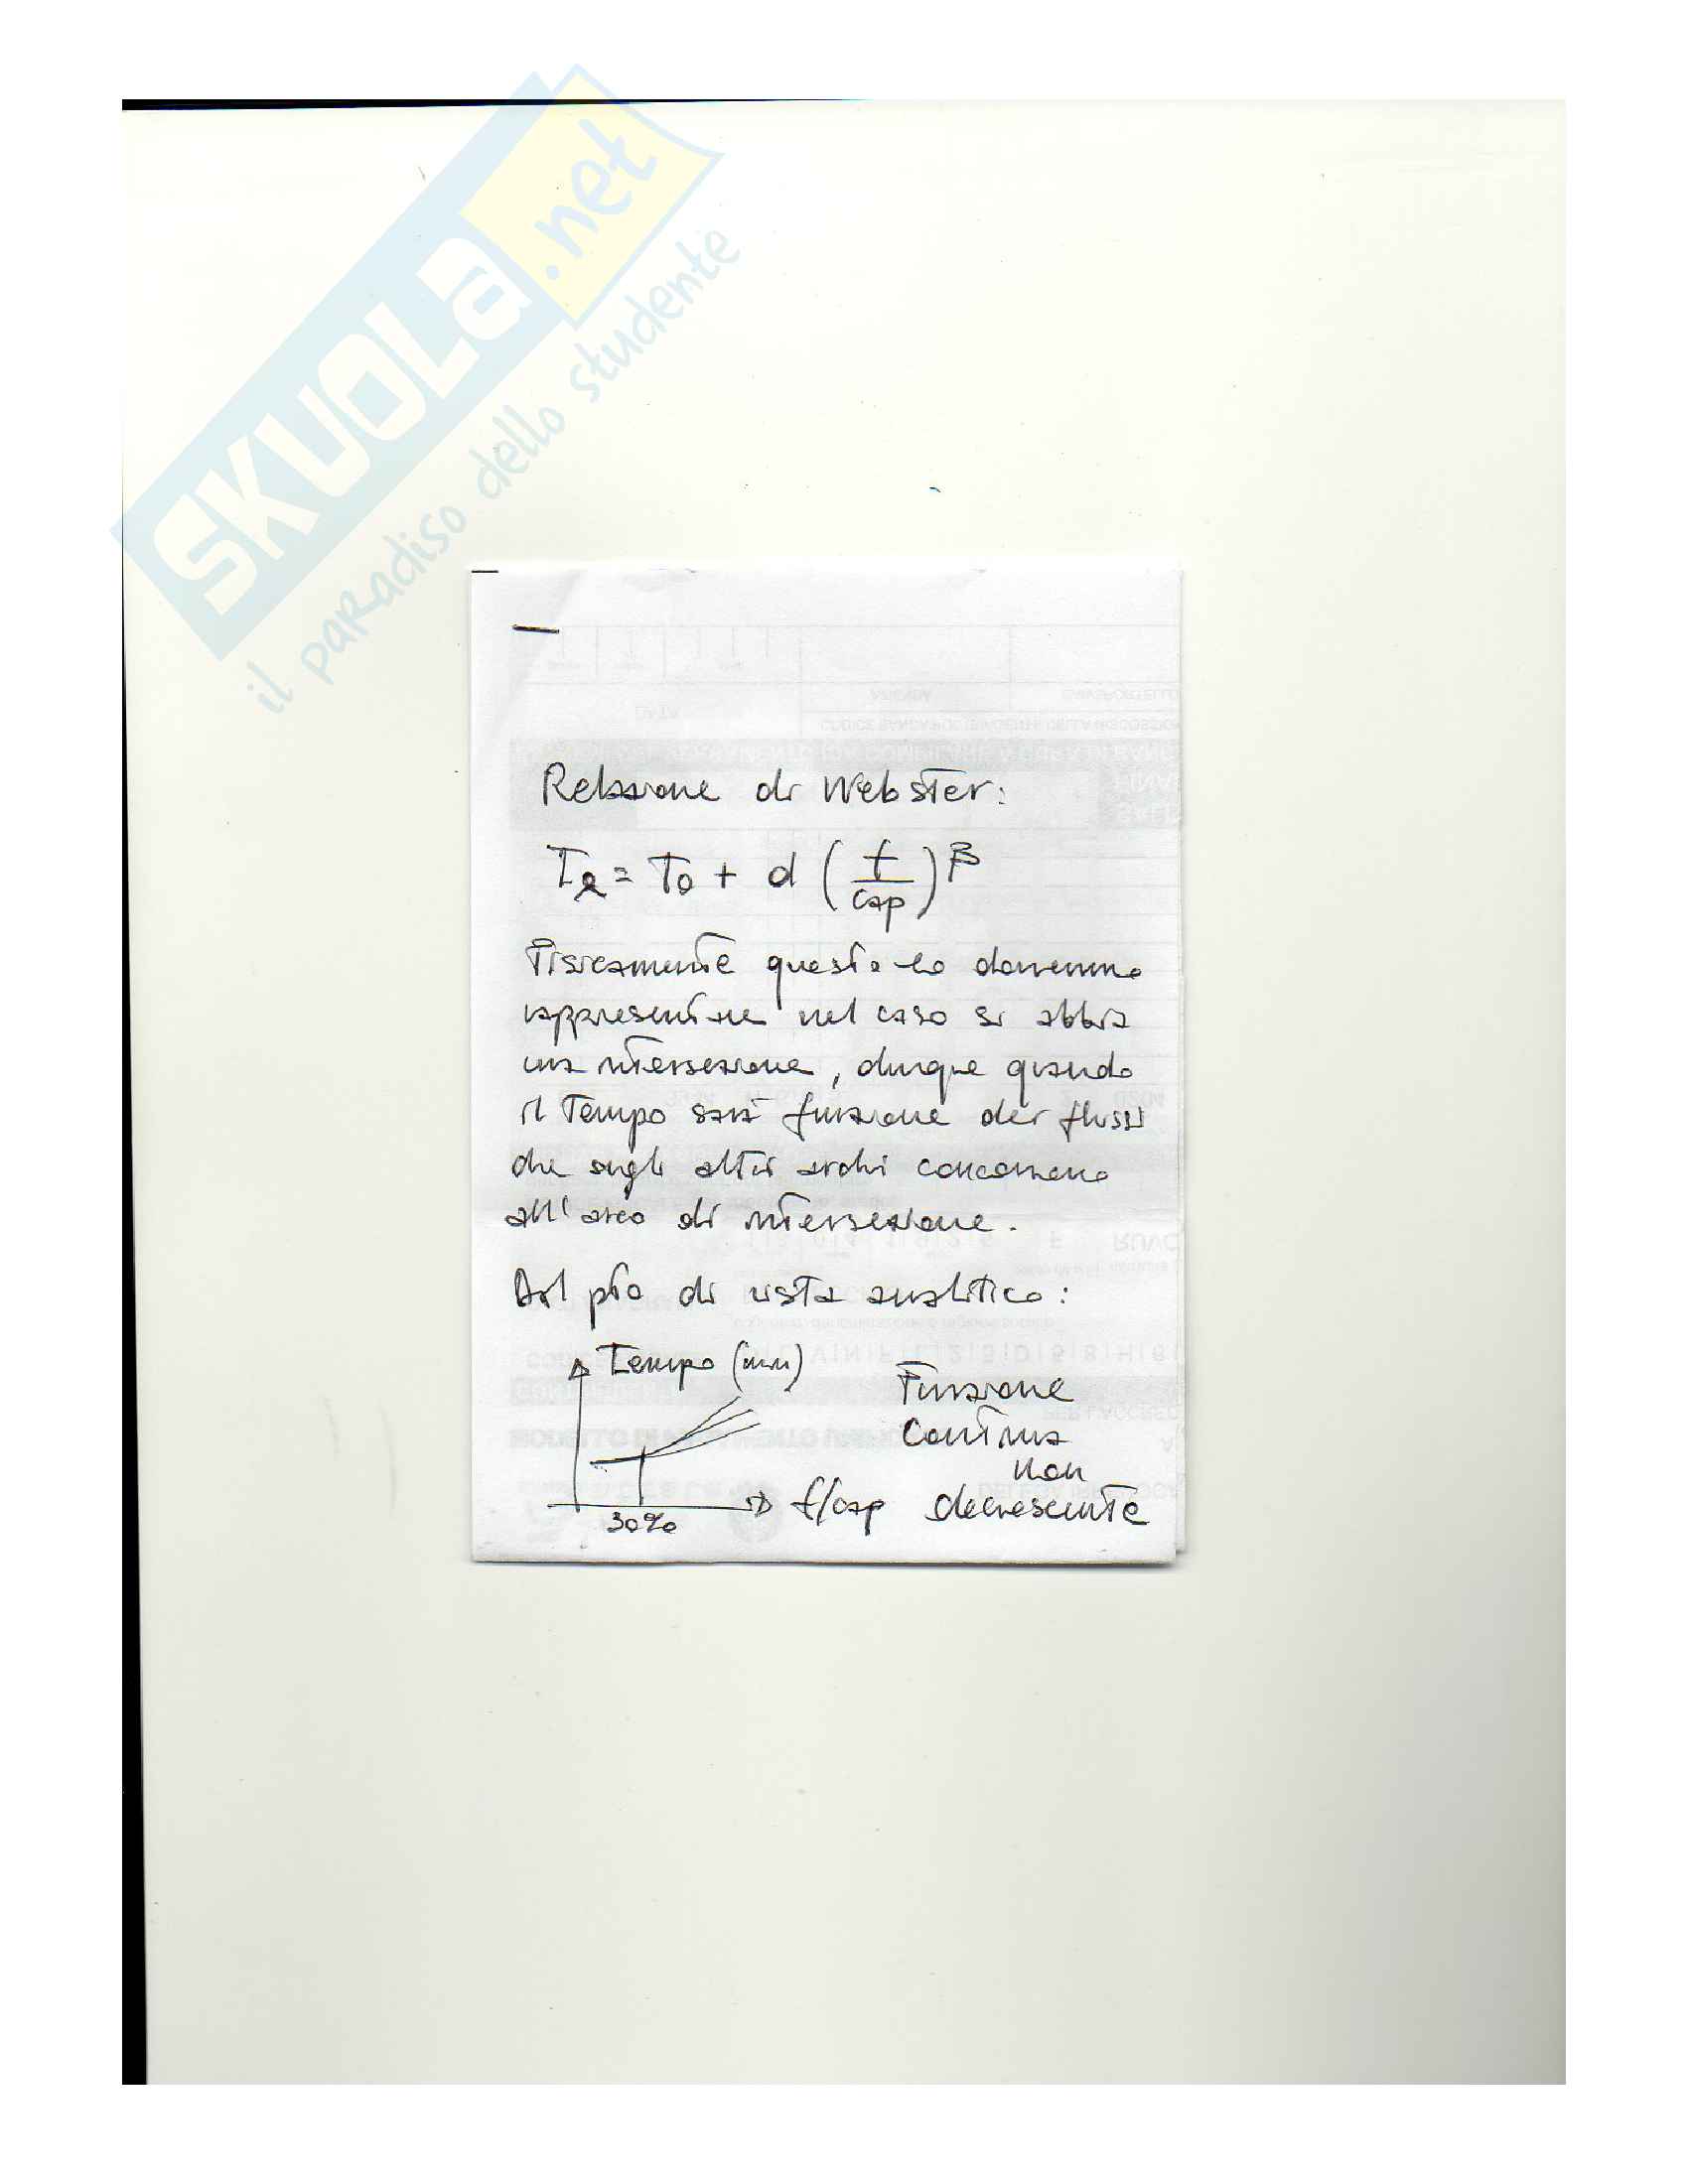 SKUOLA.net
il paradiso dello studente
Relazione di Webster:
Te = To + d (f/cap)^β
Fisicamente questa la dovremmo
rappresentare nel caso si abbia
una intersezione, dunque quando
il Tempo sarà funzione dei flussi
che sugli altri archi concorrono
all'arco di intersezione.
Dal pto di vista analitico:
Tempo (min)
Funzione
Continua
non
decrescente
f/cap
30%